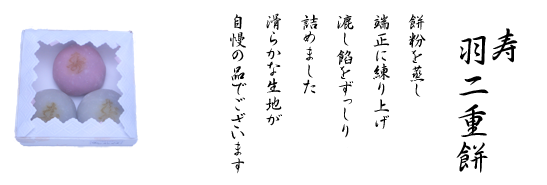 寿
羽二重餅
餅粉を蒸し
端正に練り上げ
漉し餡をずっしり
詰めました
滑らかな生地が
自慢の品でございます